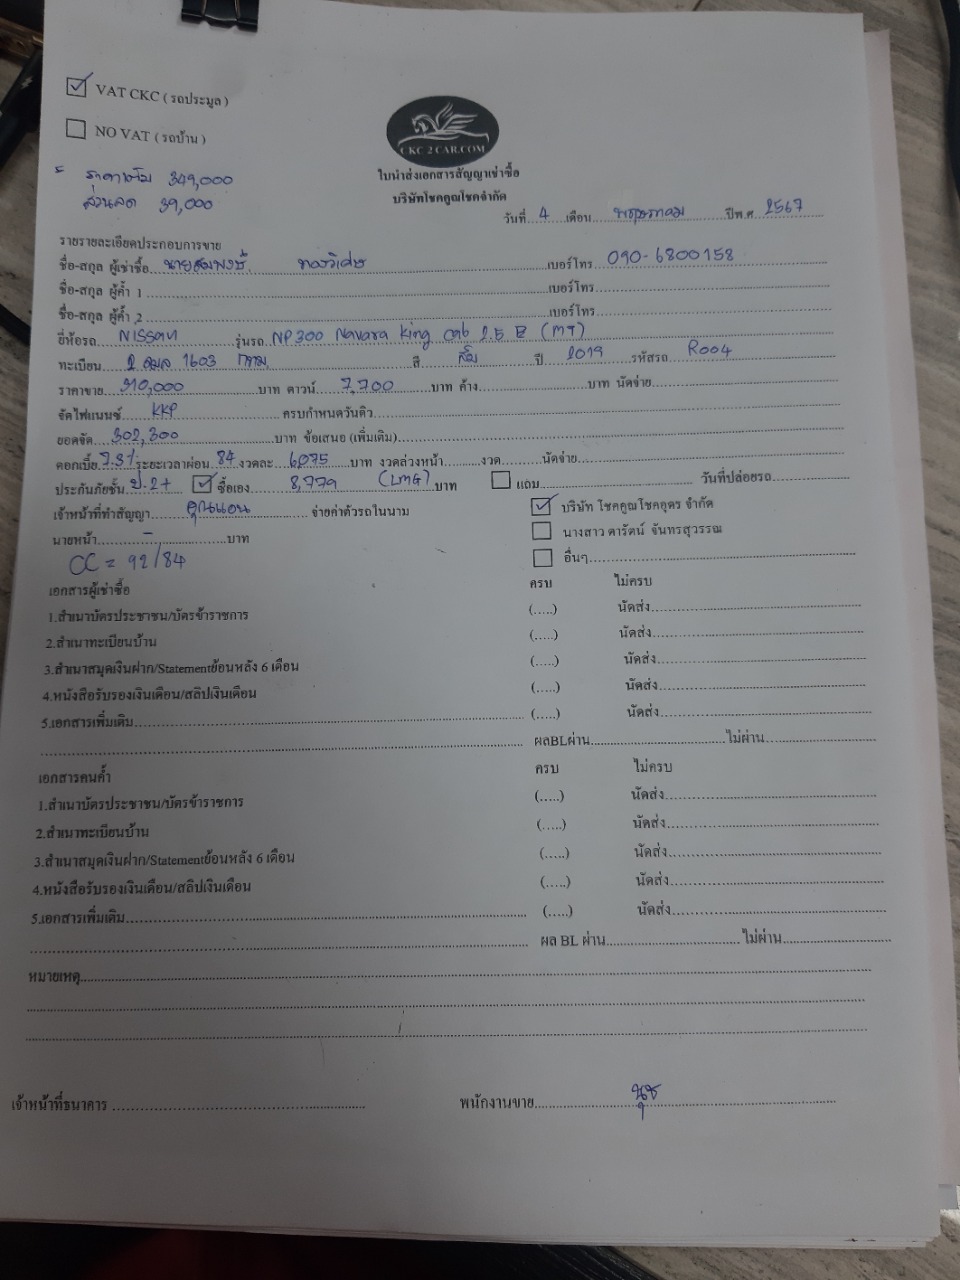 VAT CKC ( รถประมูล )
NO VAT ( รถบ้าน )
CKC 2 CAR.COM
ใบนำส่งเอกสารสัญญาเช่าซื้อ
บริษัทโชคคูณโชคจำกัด
ราคาเต็ม 349,000
ส่วนลด 39,000
วันที่ 4 เดือน พฤษภาคม ปีพ.ศ. 2567
รายรายละเอียดประกอบการขาย
ชื่อ-สกุล ผู้เช่าซื้อ นายสมพงษ์ ทองวิเศษ เบอร์โทร 090-6800158
ชื่อ-สกุล ผู้ค้ำ 1 เบอร์โทร
ชื่อ-สกุล ผู้ค้ำ 2 เบอร์โทร
ยี่ห้อรถ NISSAN รุ่นรถ NP300 Navara King cab 2.5 E (MT)
ทะเบียน 2 ฒฒ 1603 กทม สี ส้ม ปี 2019 รหัสรถ R004
ราคาขาย 310,000 บาท ดาวน์ 7,700 บาท ค้าง บาท นัดจ่าย
จัดไฟแนนซ์ KKP ครบกำหนดวันดิว
ยอดจัด 302,300 บาท ข้อเสนอ (เพิ่มเติม)
ดอกเบี้ย 7.3% ระยะเวลาผ่อน 84 งวดละ 6,075 บาท งวดล่วงหน้า งวด นัดจ่าย
ประกันภัยชั้น ป.2+ ซื้อเอง 8,779 (LMG) บาท แถม วันที่ปล่อยรถ
เจ้าหน้าที่ทำสัญญา คุณแอน จ่ายค่าตัวรถในนาม บริษัท โชคคูณโชคอุดร จำกัด
นายหน้า - บาท นางสาว ดารัตน์ จันทรสุวรรณ
CC = 92/84 อื่นๆ
เอกสารผู้เช่าซื้อ ครบ ไม่ครบ
1.สำเนาบัตรประชาชน/บัตรข้าราชการ (.....) นัดส่ง
2.สำเนาทะเบียนบ้าน (.....) นัดส่ง
3.สำเนาสมุดเงินฝาก/Statementย้อนหลัง 6 เดือน (.....) นัดส่ง
4.หนังสือรับรองเงินเดือน/สลิปเงินเดือน (.....) นัดส่ง
5.เอกสารเพิ่มเติม (.....) นัดส่ง
ผลBLผ่าน ไม่ผ่าน
เอกสารคนค้ำ ครบ ไม่ครบ
1.สำเนาบัตรประชาชน/บัตรข้าราชการ (.....) นัดส่ง
2.สำเนาทะเบียนบ้าน (.....) นัดส่ง
3.สำเนาสมุดเงินฝาก/Statementย้อนหลัง 6 เดือน (.....) นัดส่ง
4.หนังสือรับรองเงินเดือน/สลิปเงินเดือน (.....) นัดส่ง
5.เอกสารเพิ่มเติม (.....) นัดส่ง
ผล BL ผ่าน ไม่ผ่าน
หมายเหตุ
เจ้าหน้าที่ธนาคาร พนักงานขาย นุช